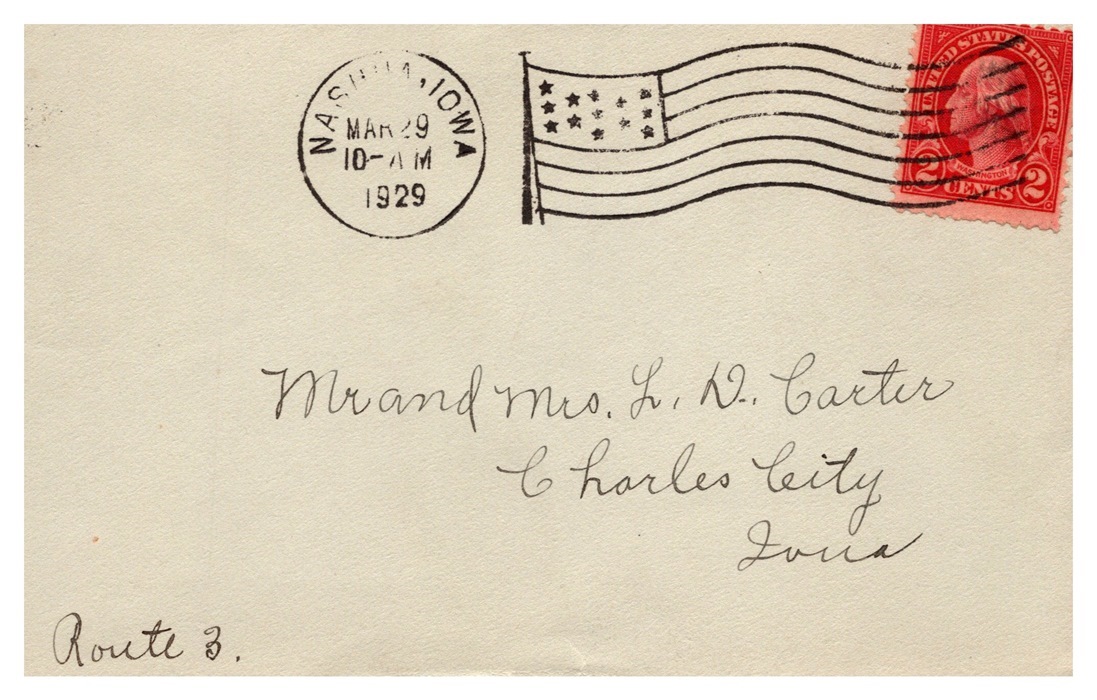 NASHUA, IOWA
MAR 29
10-AM
1929
UNITED STATES POSTAGE
WASHINGTON
2 CENTS 2
Mr and Mrs. L. D. Carter
Charles City
Iowa
Route 3.